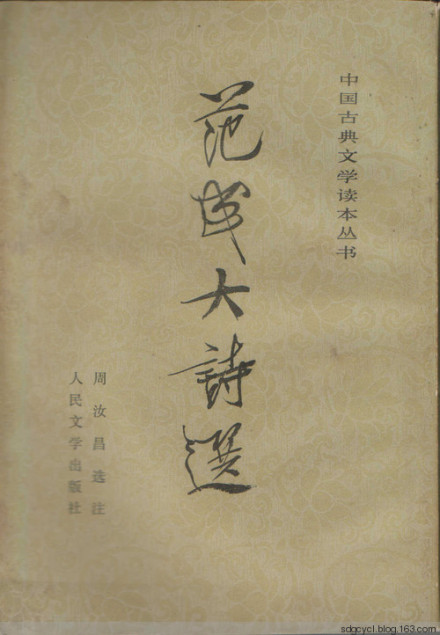 中国古典文学读本丛书
范成大詩選
周汝昌选注
人民文学出版社
sdqcycl.blog.163.com